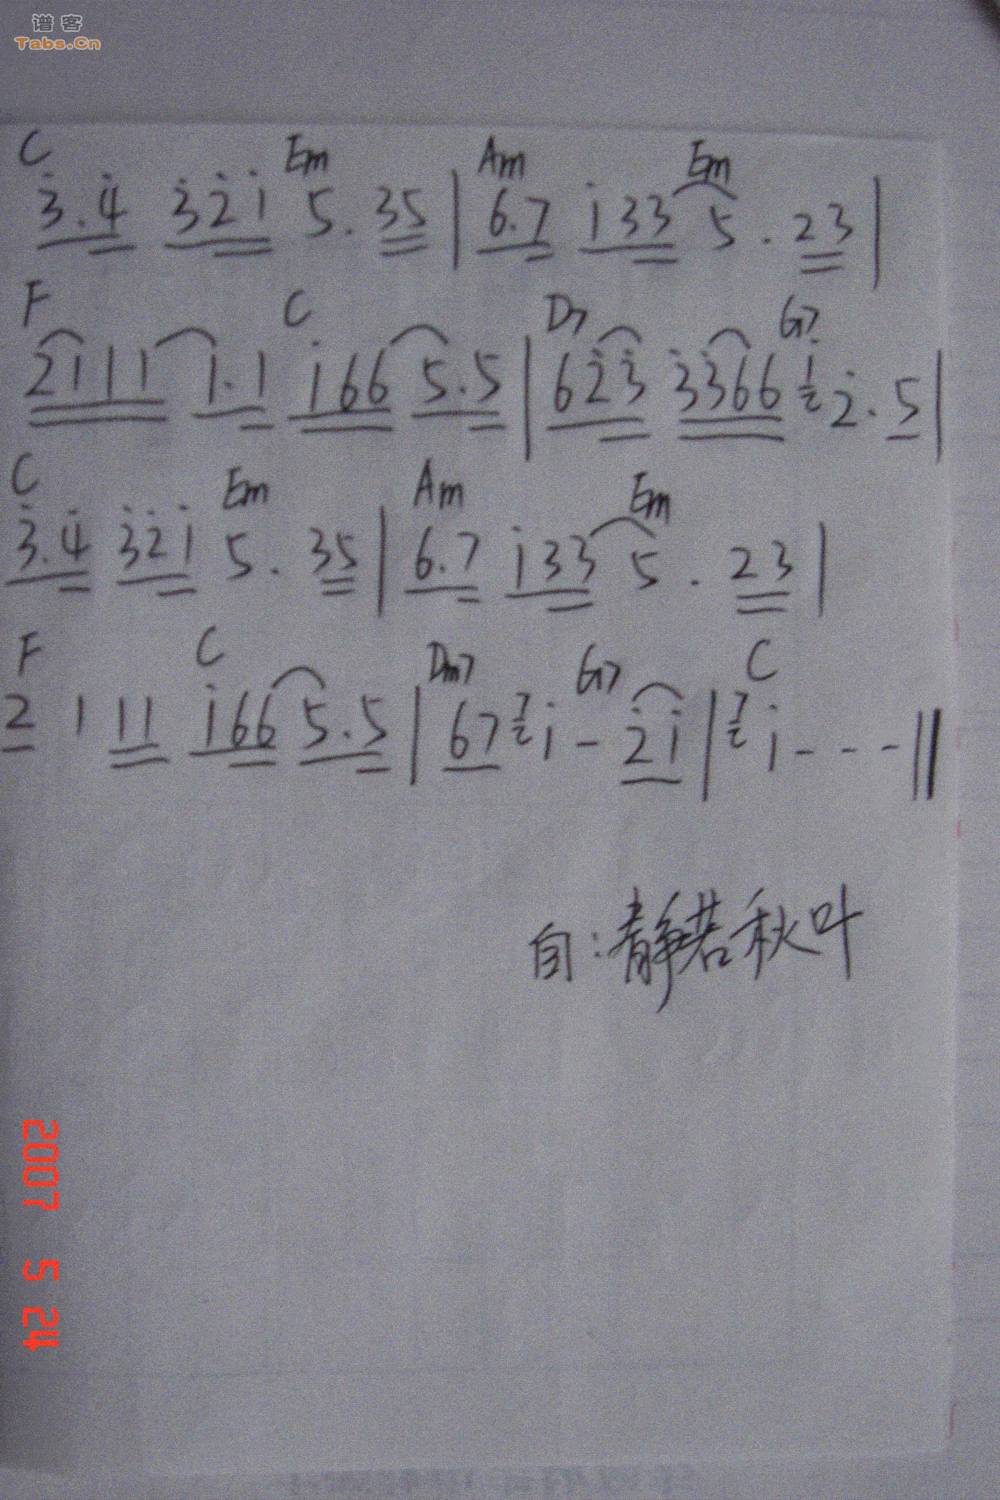 谱客
Tabs.Cn
C Em Am Em
3̇.4̇ 3̇2̇1̇ 5. 35 | 6.7 1̇33 5. 23 |
F C D7 G7
2111 1.1 1̇66 5.5 | 62̇3̇ 3̇3̇66 1̇2̇. 5 |
C Em Am Em
3̇.4̇ 3̇2̇1̇ 5. 35 | 6.7 1̇33 5. 23 |
F C Dm7 G7 C
2 1 11 1̇66 5.5 | 67 7 1̇ - 2̇1̇ | 7 1̇ - - - ||
自:静若秋叶
2007 5 24